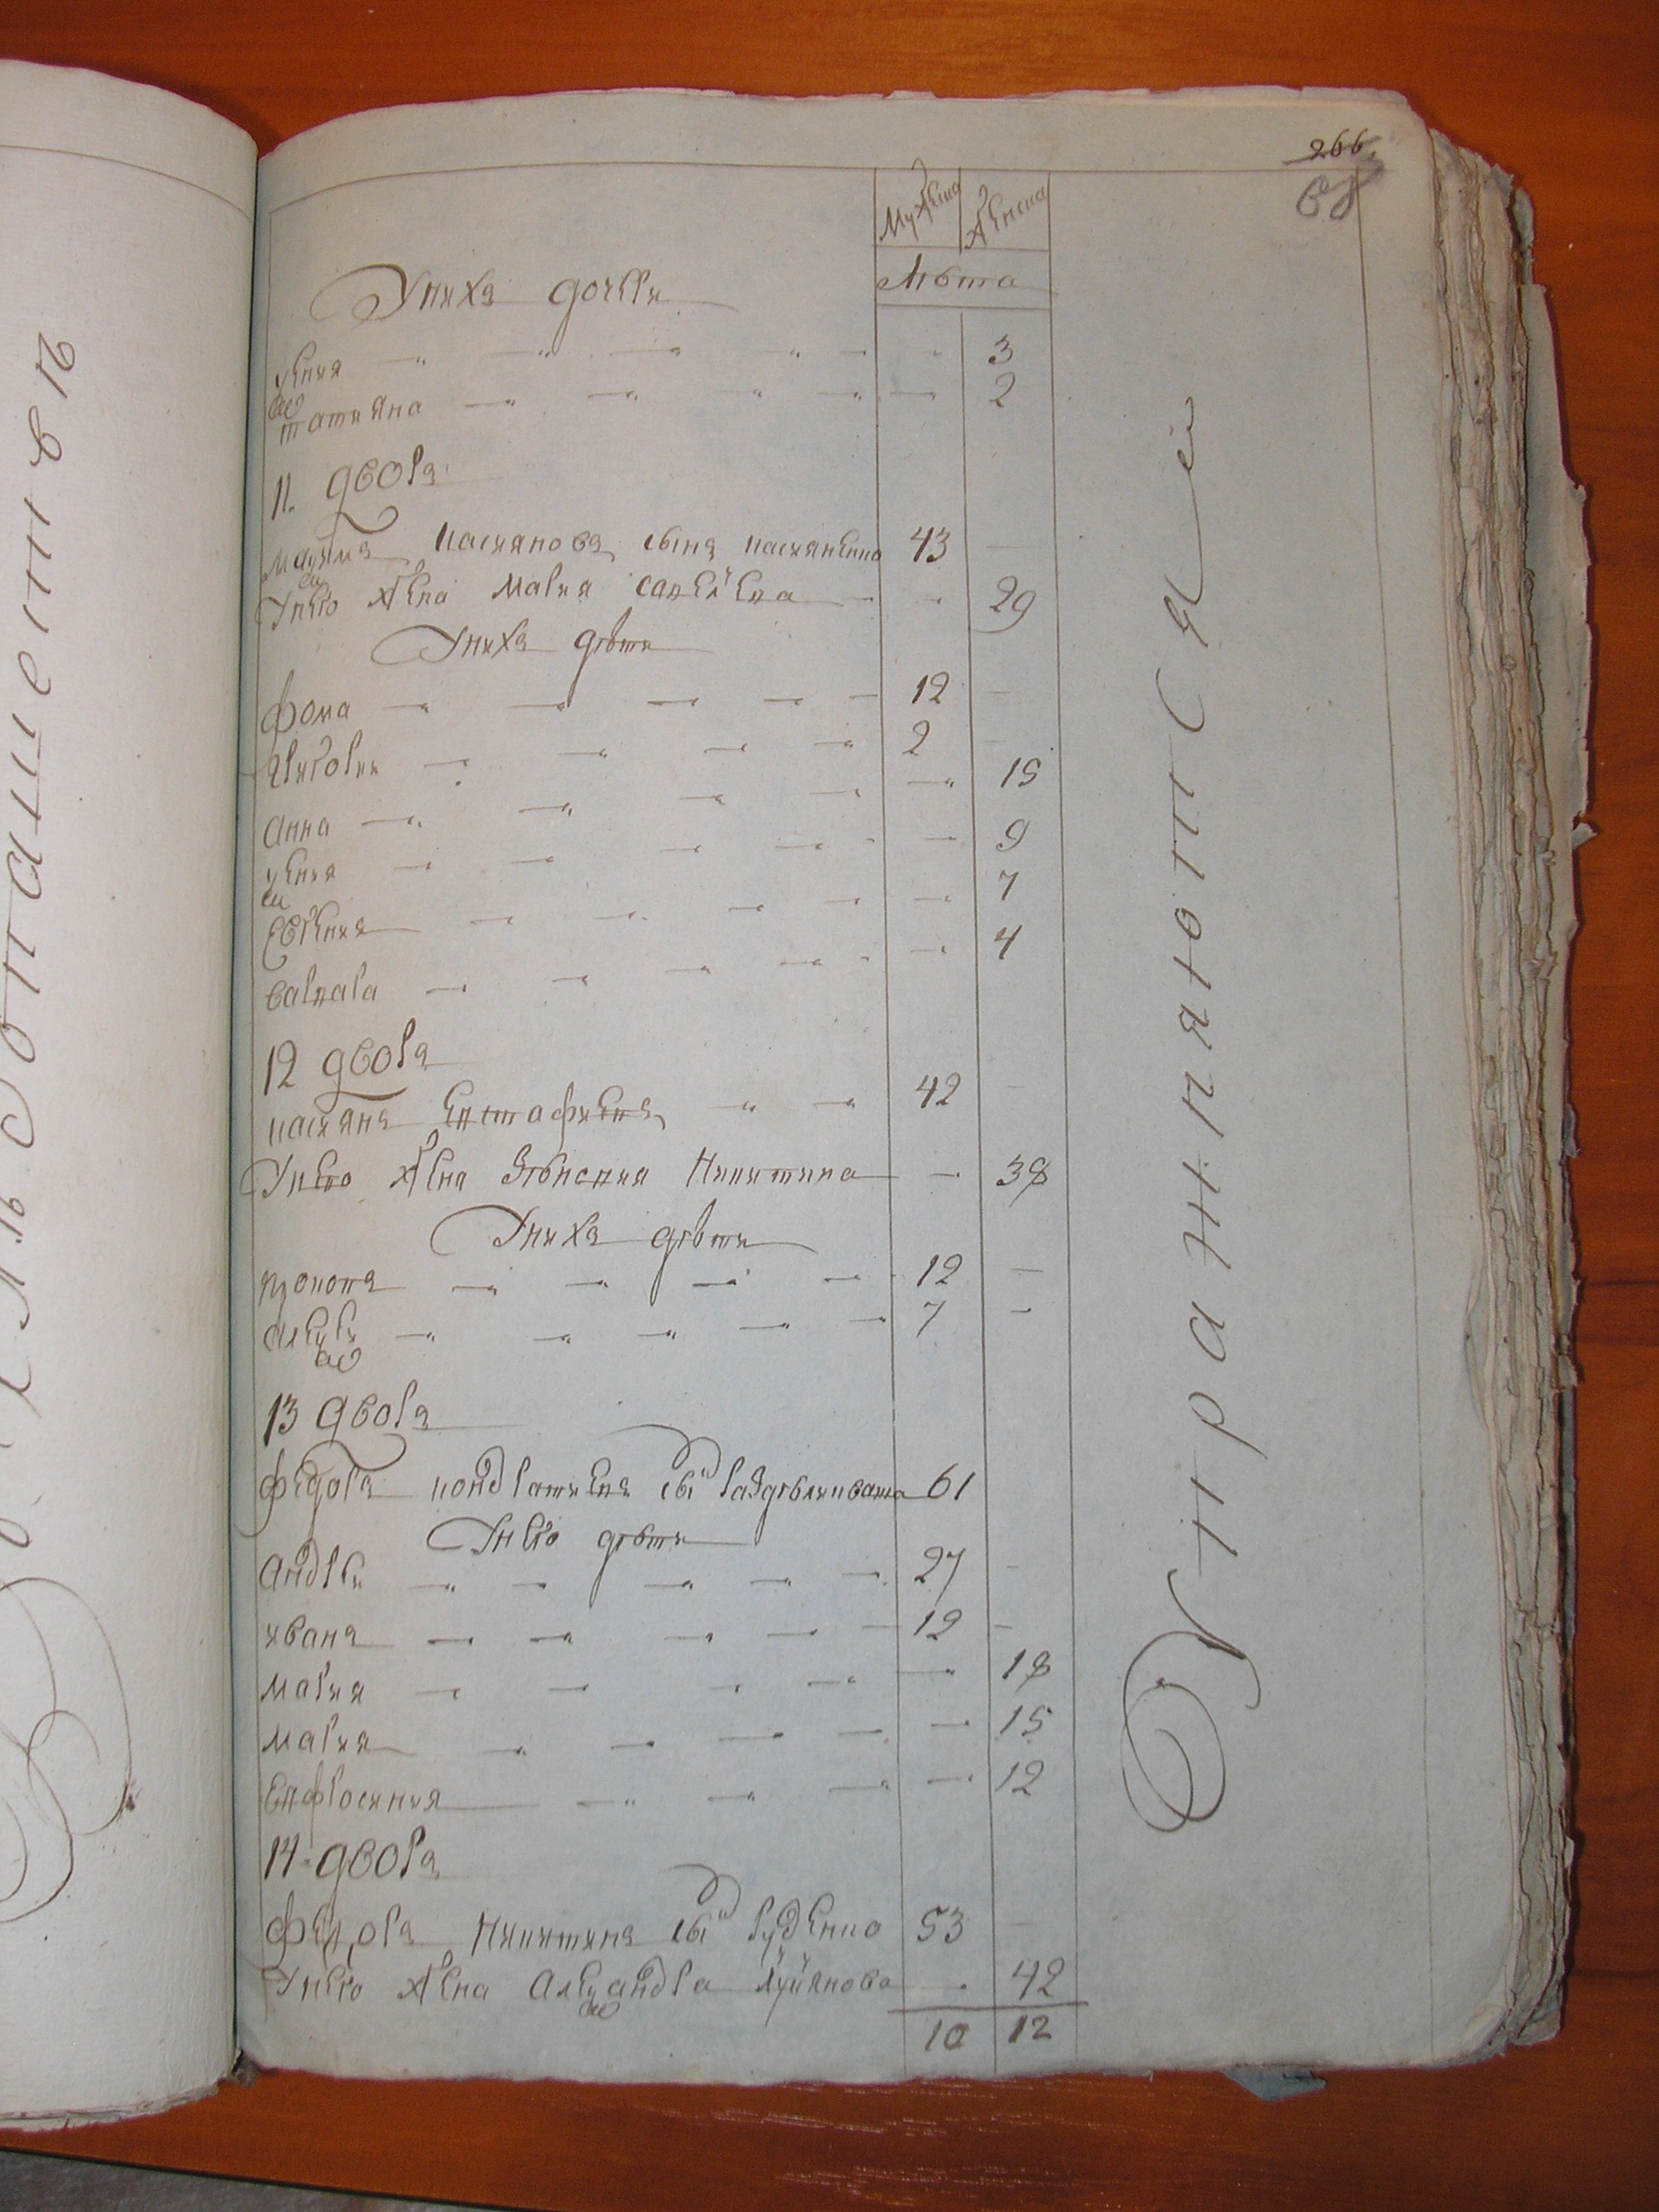 266
69
Мужеска
Женска
Лѣта
У нихъ дочери
Ксения 3
татияна 2
11. дворъ
Максимъ касиановъ сынъ касияненко 43
У него жена мария савелʼева 29
У нихъ дѣти
Фома 12
Григорий 2
анна 15
Ксения 9
Евгения 7
варвара 4
12 дворъ
касиянъ Евстафиевъ 42
У него жена Зѣновия Никитина 38
У нихъ дѣти
прокопъ 12
алексей 7
13 дворъ
Федоръ кондратиевъ сынъ 61
У него дѣти
андрей 27
иванъ 12
мария 18
мария 15
Евфросиния 12
14 дворъ
Федоръ Никитинъ сынъ руденко 53
У него жена александра лукиянова 42
10 12
Упражняются